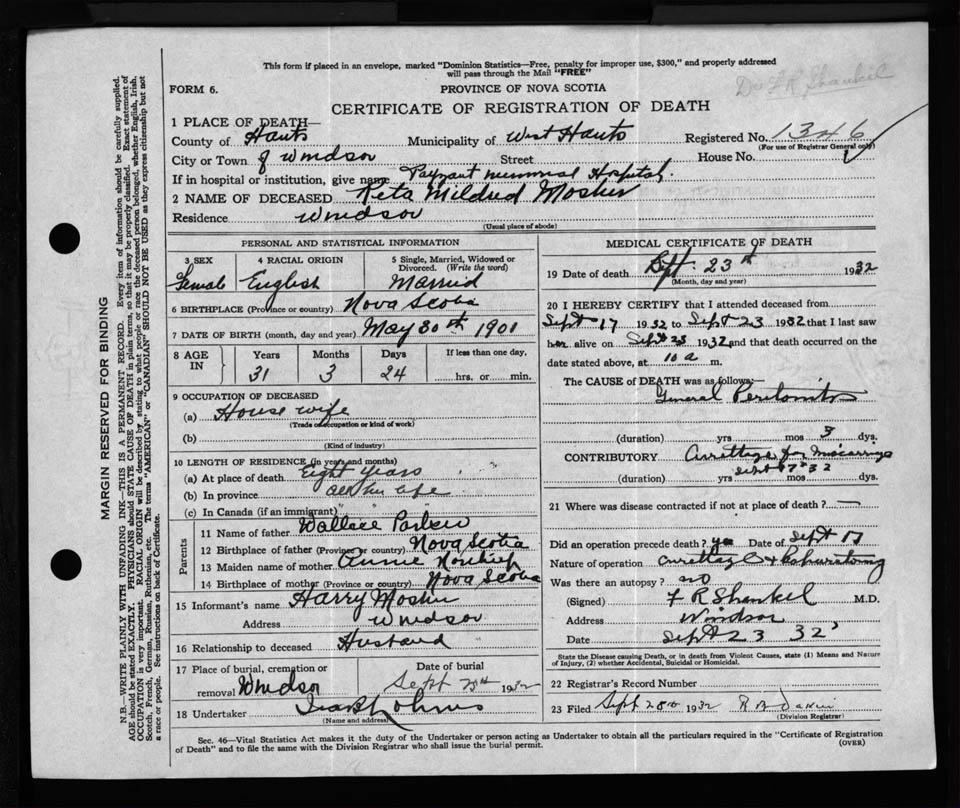 This form if placed in an envelope, marked "Dominion Statistics—Free, penalty for improper use, $300," and properly addressed
will pass through the Mail "FREE"
Dr F R Shankel
FORM 6.
PROVINCE OF NOVA SCOTIA
CERTIFICATE OF REGISTRATION OF DEATH
1 PLACE OF DEATH—
County of Hants Municipality of West Hants Registered No. 1346
(For use of Registrar General only)
City or Town of Windsor Street House No.
If in hospital or institution, give name Payzant Memorial Hospital.
2 NAME OF DECEASED Reta Mildred Mosher
Residence Windsor
(Usual place of abode)
PERSONAL AND STATISTICAL INFORMATION
3 SEX 4 RACIAL ORIGIN 5 Single, Married, Widowed or
Divorced. (Write the word)
Female English Married
6 BIRTHPLACE (Province or country) Nova Scotia
7 DATE OF BIRTH (month, day and year) May 30th 1901
8 AGE IN Years Months Days If less than one day,
31 3 24 hrs. or min.
9 OCCUPATION OF DECEASED
(a) House wife
(Trade or occupation or kind of work)
(b)
(Kind of industry)
10 LENGTH OF RESIDENCE (in years and months)
(a) At place of death Eight years
(b) In province all her life
(c) In Canada (if an immigrant)
Parents
11 Name of father Wallace Parker
12 Birthplace of father (Province or country) Nova Scotia
13 Maiden name of mother Annie
14 Birthplace of mother (Province or country) Nova Scotia
15 Informant's name Harry Mosher
Address Windsor
16 Relationship to deceased Husband
17 Place of burial, cremation or
removal Windsor
Date of burial
Sept 25th 1932
18 Undertaker
(Name and address)
MEDICAL CERTIFICATE OF DEATH
19 Date of death Sept. 23rd 1932
(Month, day and year)
20 I HEREBY CERTIFY that I attended deceased from
Sept 17 1932 to Sept 23 1932 that I last saw
her alive on Sept 23 1932 and that death occurred on the
date stated above, at 10 a m.
The CAUSE of DEATH was as follows:—
General Peritonitis
(duration) yrs mos 3 dys.
CONTRIBUTORY Curettage for miscarriage
Sept 17 32
(duration) yrs mos dys.
21 Where was disease contracted if not at place of death? —
Did an operation precede death? yes Date of Sept 17
Nature of operation Curettage &
Was there an autopsy? no
(Signed) F R Shankel M.D.
Address Windsor
Date Sept 23 32
State the Disease causing Death, or in death from Violent Causes, state (1) Means and Nature
of Injury, (2) whether Accidental, Suicidal or Homicidal.
22 Registrar's Record Number
23 Filed Sept 28th 1932
(Division Registrar)
Sec. 46—Vital Statistics Act makes it the duty of the Undertaker or person acting as Undertaker to obtain all the particulars required in the "Certificate of Registration
of Death" and to file the same with the Division Registrar who shall issue the burial permit.
(OVER)
MARGIN RESERVED FOR BINDING
N.B.—WRITE PLAINLY WITH UNFADING INK—THIS IS A PERMANENT RECORD. Every item of information should be carefully supplied.
AGE should be stated EXACTLY. PHYSICIANS should STATE CAUSE OF DEATH in plain terms, so that it may be properly classified. Exact statement of
OCCUPATION is very important. RACIAL ORIGIN will be described by stating to what people or race the deceased person belonged, whether English, Irish,
Scotch, French, German, Russian, Ruthenian, etc. The terms "AMERICAN" or "CANADIAN" SHOULD NOT BE USED as they express citizenship but not
a race or people. See instructions on back of Certificate.